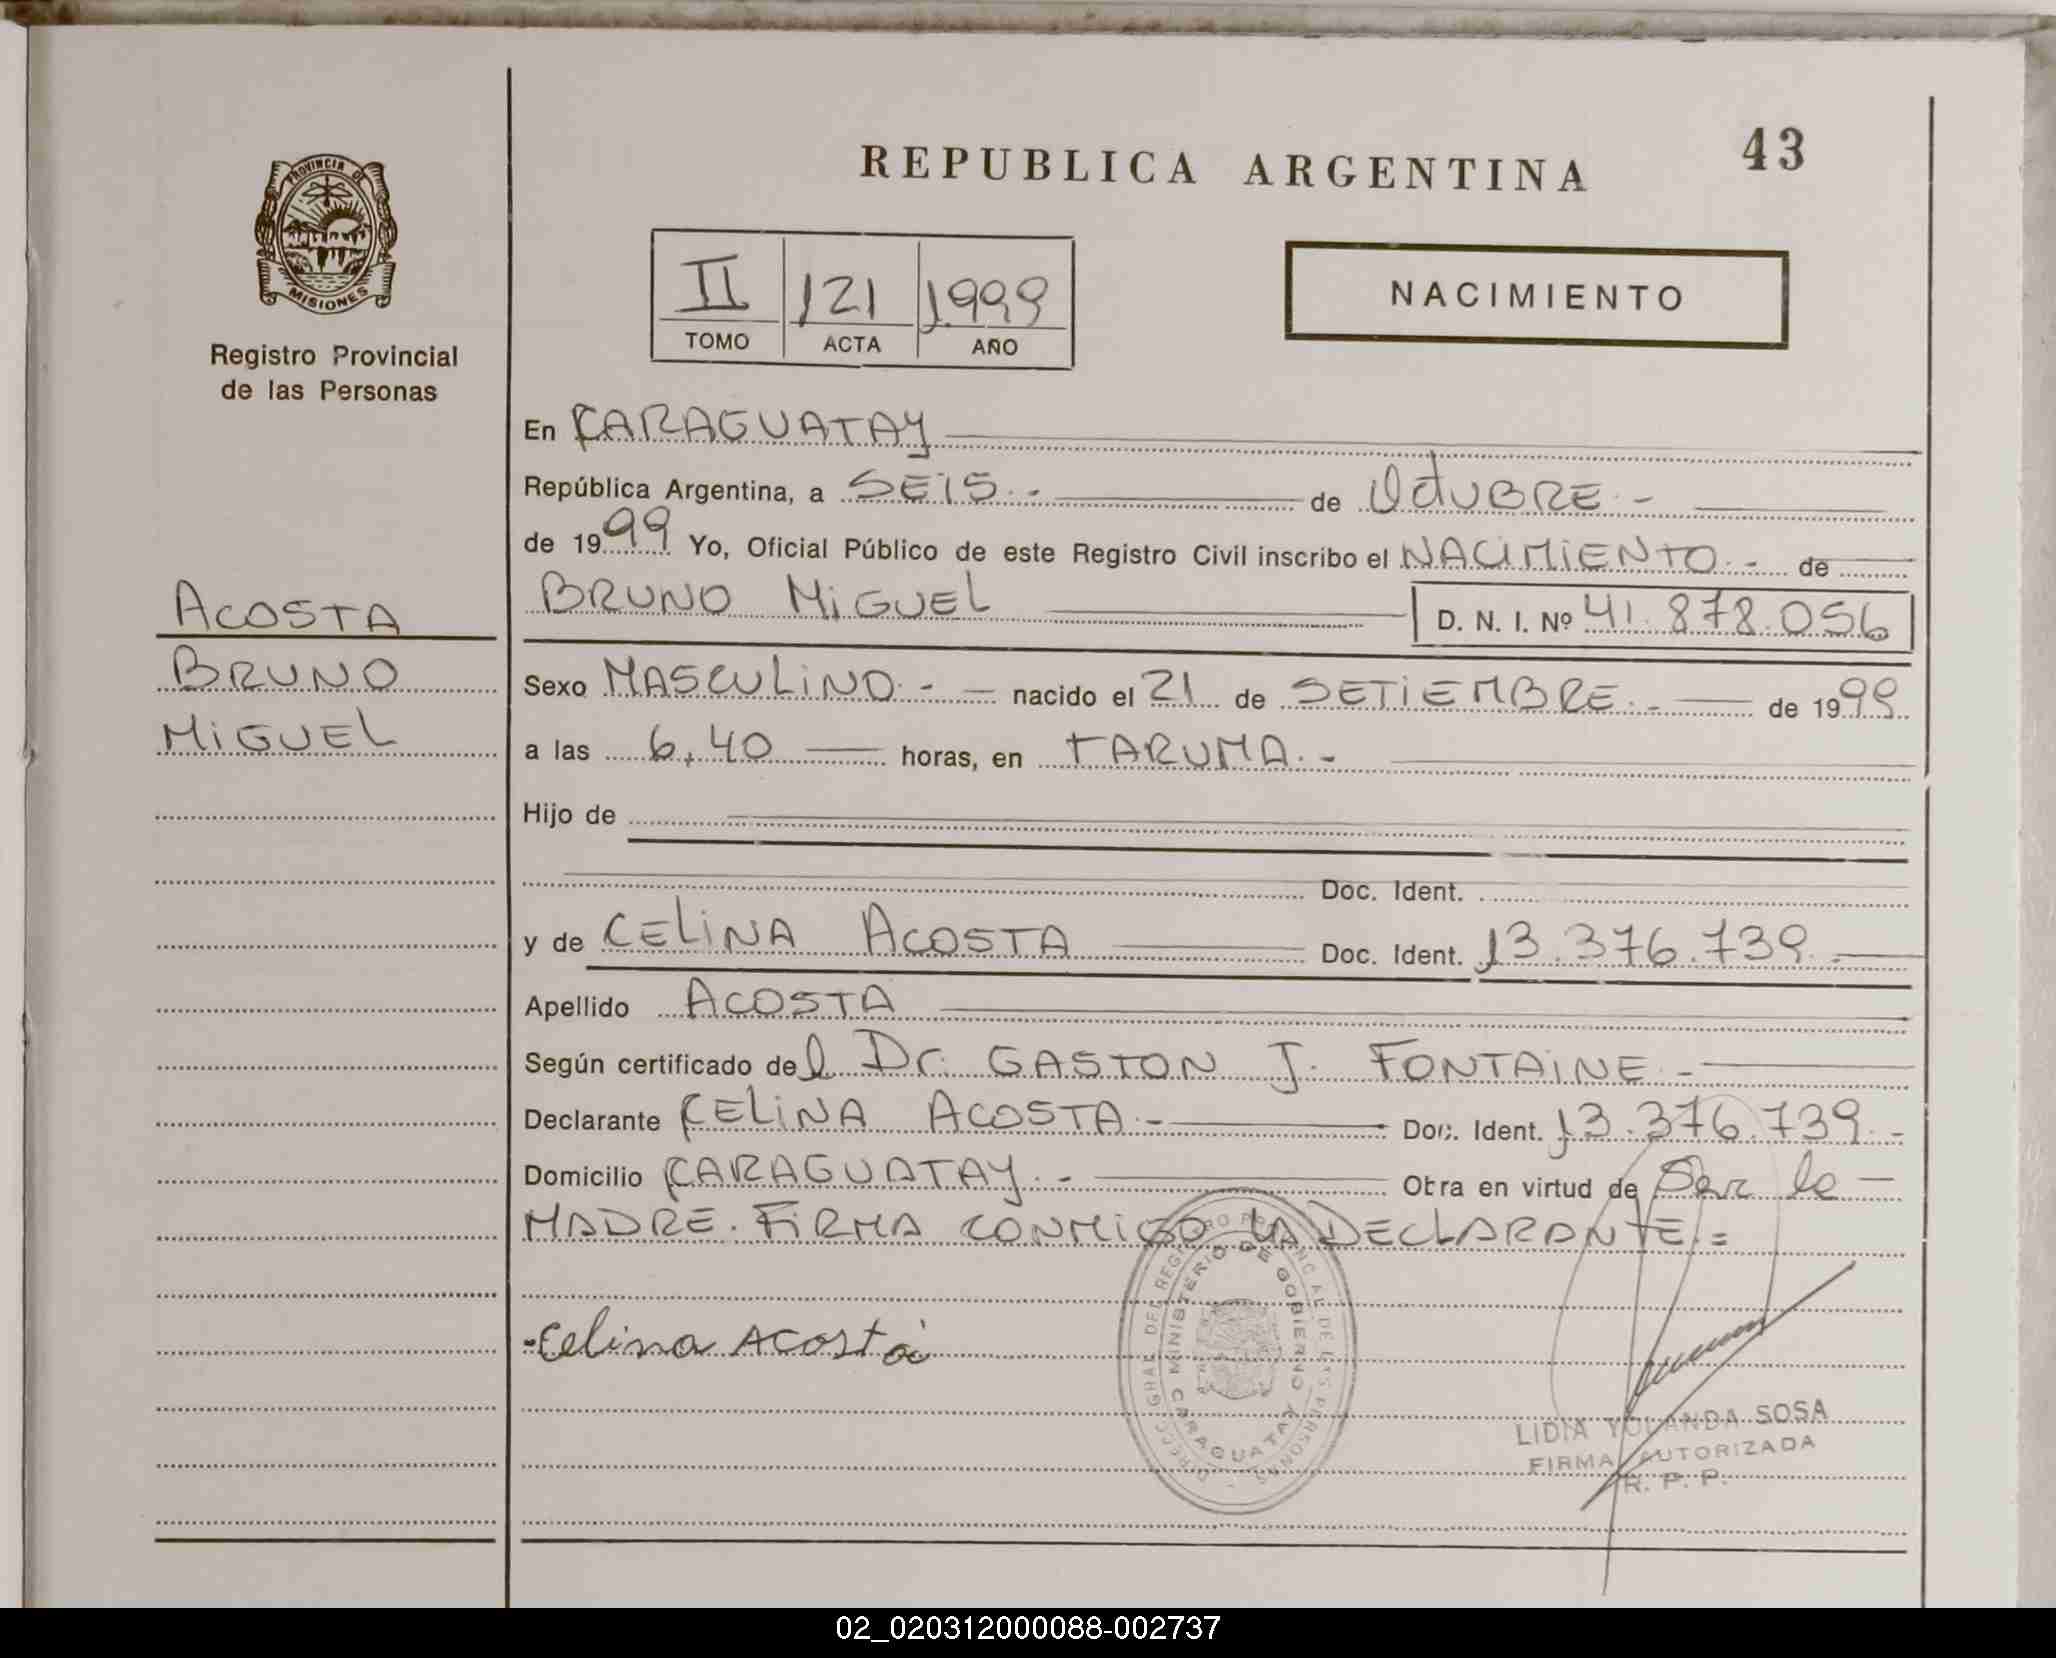 43
REPUBLICA ARGENTINA
PROVINCIA DE
MISIONES
Registro Provincial
de las Personas
II 121 1.999
TOMO ACTA AÑO
NACIMIENTO
En CARAGUATAY
República Argentina, a SEIS.- de OctUBRE.-
de 1999 Yo, Oficial Público de este Registro Civil inscribo el NACIMIENTO.- de
BRUNO MIGUEL D. N. I. Nº 41.878.056
ACOSTA
BRUNO
MIGUEL
Sexo MASCULINO.- nacido el 21 de SETIEMBRE.- de 1999
a las 6,40 horas, en TARUMA.-
Hijo de
Doc. Ident.
y de CELINA ACOSTA Doc. Ident. 13.376.739.-
Apellido ACOSTA
Según certificado del Dr. GASTON J. FONTAINE.-
Declarante CELINA ACOSTA.- Doc. Ident. 13.376.739.-
Domicilio CARAGUATAY.- Obra en virtud de Ser la -
MADRE. FIRMA CONMIGO LA DECLARANTE.=
-Celina Acosta
DEL REGISTRO PROVINCIAL DE LAS PERSONAS
MINISTERIO DE GOBIERNO
CARAGUATAY
LIDIA YOLANDA SOSA
FIRMA AUTORIZADA
R. P. P.
02_020312000088-002737